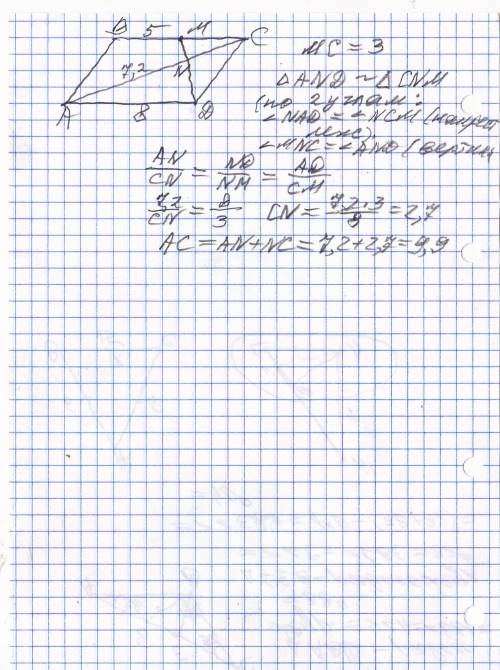 B 5 M C
7,2
N
A 8 D
MC = 3
△AND ~ △CNM
(по 2 углам:
∠NAD = ∠NCM (накрест
леж).
∠MNC = ∠AND (вертик
AN/CN = ND/NM = AD/CM
7,2/CN = 8/3 CN = 7,2·3/8 = 2,7
AC = AN + NC = 7,2 + 2,7 = 9,9